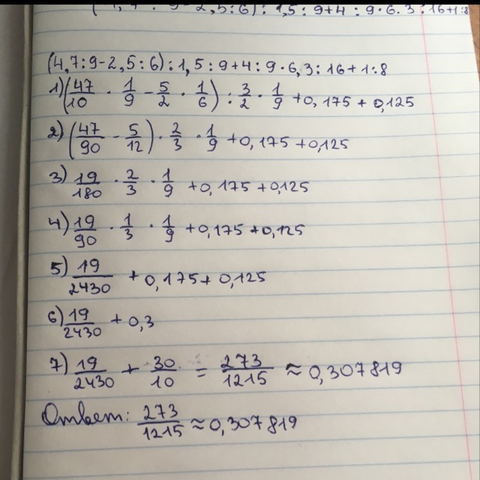 (4,7:9-2,5:6):1,5:9+4:9·6,3:16+1:8
(4,7:9-2,5:6):1,5:9+4:9·6,3:16+1:8
1) (47/10 · 1/9 - 5/2 · 1/6) : 3/2 · 1/9 + 0,175 + 0,125
2) (47/90 - 5/12) · 2/3 · 1/9 + 0,175 + 0,125
3) 19/180 · 2/3 · 1/9 + 0,175 + 0,125
4) 19/90 · 1/3 · 1/9 + 0,175 + 0,125
5) 19/2430 + 0,175 + 0,125
6) 19/2430 + 0,3
7) 19/2430 + 30/10 = 273/1215 ≈ 0,307819
Ответ: 273/1215 ≈ 0,307819